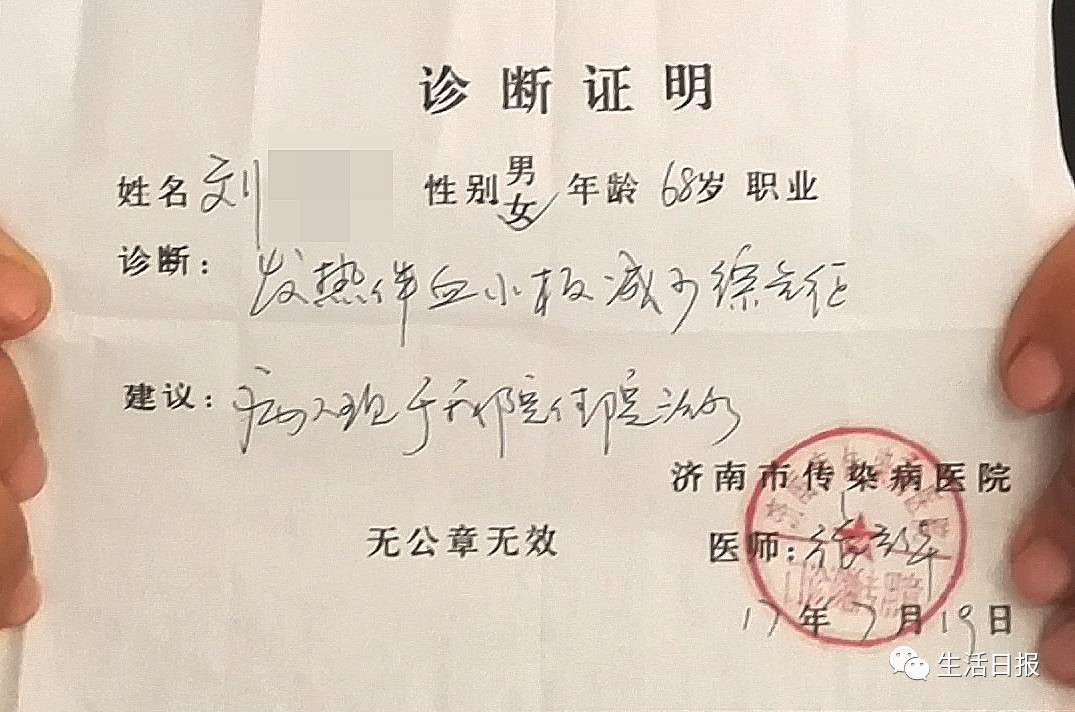 诊断证明
姓名 刘 性别 男 女✓ 年龄 68岁 职业
诊断: 发热伴血小板减少综合征
建议: 病人现于我院住院治疗
济南市传染病医院
无公章无效 医师: 张
17年7月19日
生活日报